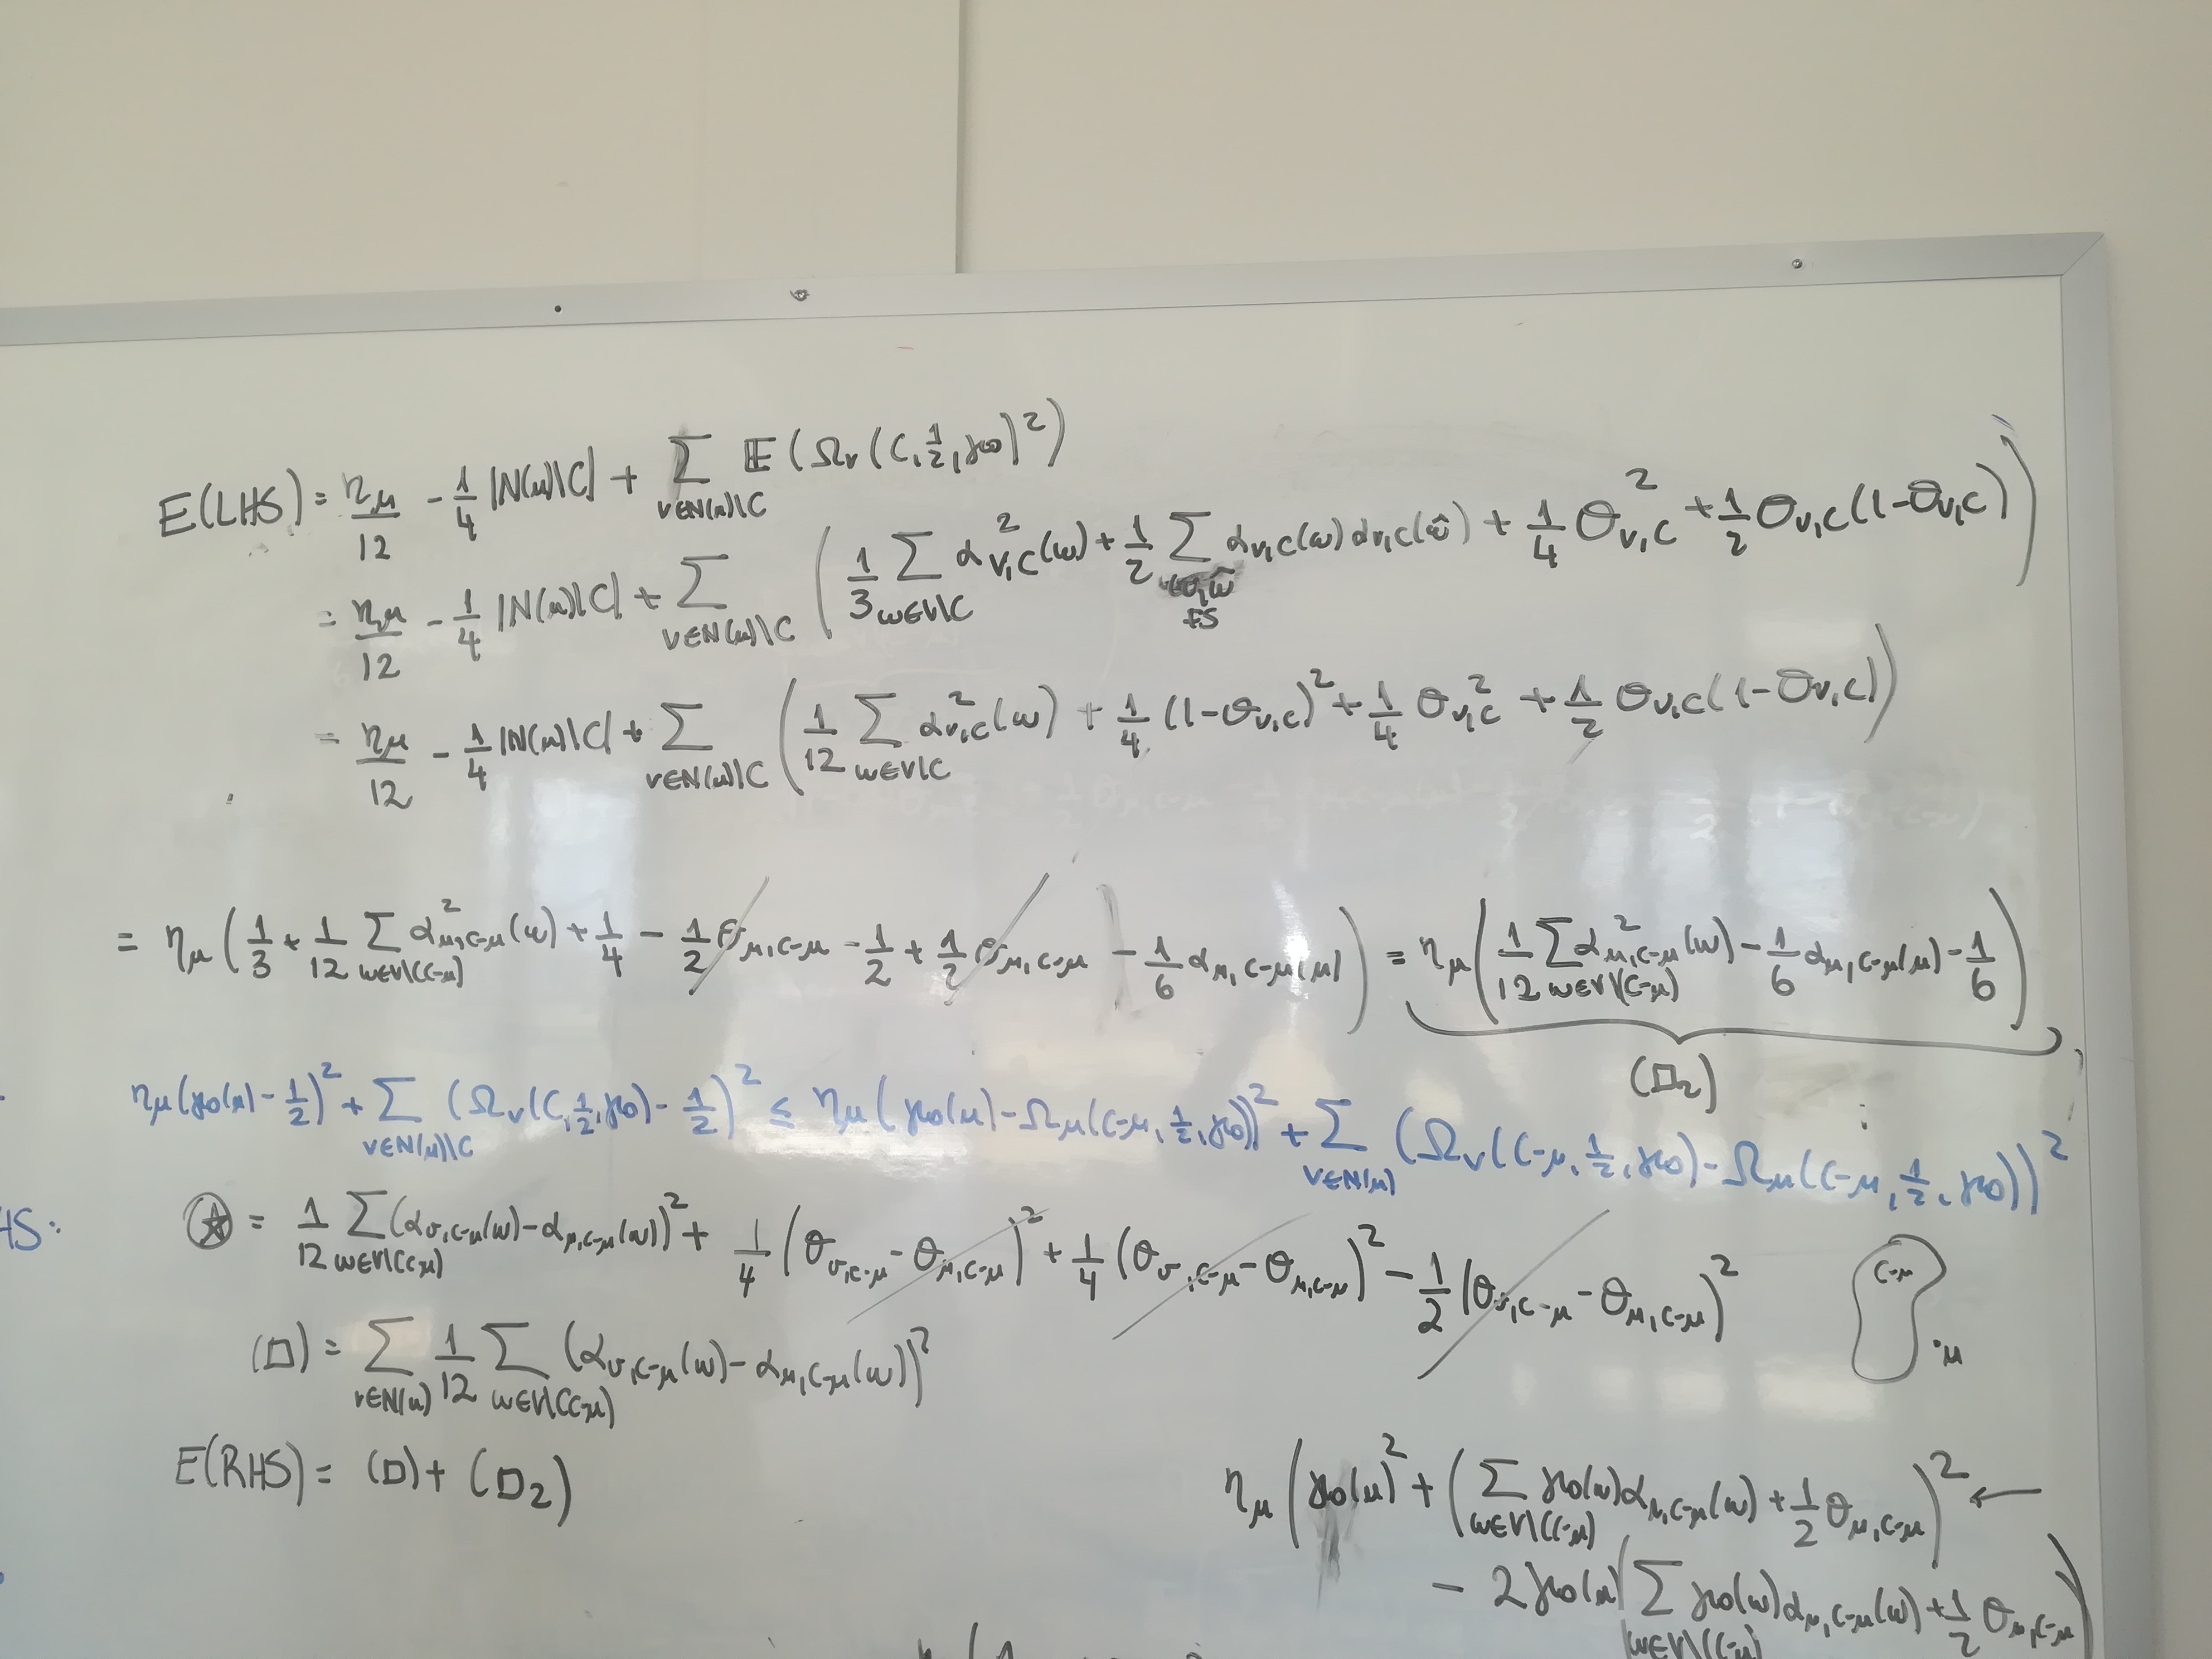 E(LHS) = η_μ/12 - 1/4 |N(μ)\C| + Σ_{v∈N(μ)\C} 𝔼(Ω_v(C, 1/2, γ0)^2)
= η_μ/12 - 1/4 |N(μ)\C| + Σ_{v∈N(μ)\C} (1/3 Σ_{w∈V\C} α^2_{v,C}(w) + 1/2 Σ α_{v,C}(w) α_{v,C}(ŵ) + 1/4 θ^2_{v,C} + 1/2 θ_{v,C}(1-θ_{v,C}))
= η_μ/12 - 1/4 |N(μ)\C| + Σ_{v∈N(μ)\C} (1/12 Σ_{w∈V\C} α^2_{v,C}(w) + 1/4 (1-θ_{v,C})^2 + 1/4 θ^2_{v,C} + 1/2 θ_{v,C}(1-θ_{v,C}))
= η_μ (1/3 + 1/12 Σ_{w∈V\(C-μ)} α^2_{μ,C-μ}(w) + 1/4 - 1/2 θ_{μ,C-μ} - 1/2 + 1/2 θ_{μ,C-μ} - 1/6 α_{μ,C-μ}(μ)) = η_μ (1/12 Σ_{w∈V\(C-μ)} α^2_{μ,C-μ}(w) - 1/6 α_{μ,C-μ}(μ) - 1/6)
(□2)
η_μ(γ0(μ) - 1/2)^2 + Σ_{v∈N(μ)\C} (Ω_v(C, 1/2, γ0) - 1/2)^2 ≤ η_μ(γ0(μ) - Ω_μ(C-μ, 1/2, γ0))^2 + Σ_{v∈N(μ)} (Ω_v(C-μ, 1/2, γ0) - Ω_μ(C-μ, 1/2, γ0))^2
HS: ⍟ = 1/12 Σ_{w∈V\(C-μ)} (α_{v,C-μ}(w) - α_{μ,C-μ}(w))^2 + 1/4 (θ_{v,C-μ} - θ_{μ,C-μ})^2 + 1/4 (θ_{v,C-μ} - θ_{μ,C-μ})^2 - 1/2 (θ_{v,C-μ} - θ_{μ,C-μ})^2
C-μ
·μ
(□) = Σ_{v∈N(μ)} 1/12 Σ_{w∈V\(C-μ)} (α_{v,C-μ}(w) - α_{μ,C-μ}(w))^2
E(RHS) = (□) + (□2)
η_μ (γ0(μ)^2 + (Σ_{w∈V\(C-μ)} γ0(w) α_{μ,C-μ}(w) + 1/2 θ_{μ,C-μ})^2 ←
- 2γ0(μ) (Σ_{w∈V\(C-μ)} γ0(w) α_{μ,C-μ}(w) + 1/2 θ_{μ,C-μ})